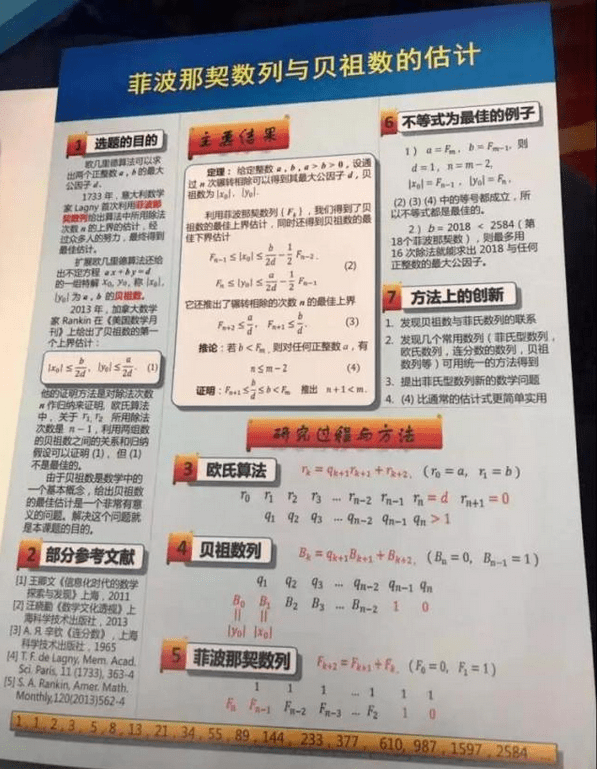 菲波那契数列与贝祖数的估计
1 选题的目的
欧几里德算法可以求
出两个正整数 a, b 的最大
公因子 d.
1733 年，意大利数学
家 Lagny 首次利用菲波那
契数列给出算法中所用除法
次数 n 的上界的估计，经
过众多人的努力，最终得到
最佳估计。
扩展欧几里德算法还给
出不定方程 ax+by=d
的一组特解 x₀, y₀, 称 |x₀|,
|y₀| 为 a, b 的贝祖数。
2013 年，加拿大数学
家 Rankin 在《美国数学月
刊》上给出了贝祖数的第一
个上界估计：
|x₀| ≤ b/2d, |y₀| ≤ a/2d. (1)
他的证明方法是对除法次数
n 作归纳来证明, 欧氏算法
中，关于 r₁, r₂ 所用除法
次数是 n − 1，利用两组数
的贝祖数之间的关系和归纳
假设可以证明 (1)、但 (1)
不是最佳的。
由于贝祖数是数学中的
一个基本概念，给出贝祖数
的最佳估计是一个非常有意
义的问题。解决这个问题就
是本课题的目的。
2 部分参考文献
[1] 王卿文《信息化时代的数学
探索与发现》上海，2011
[2] 汪晓勤《数学文化透视》上
海科学技术出版社，2013
[3] А. Я. 辛钦《连分数》，上海
科学技术出版社，1965
[4] T. F. de Lagny, Mem. Acad.
Sci. Paris, 11 (1733), 363-4
[5] S. A. Rankin, Amer. Math.
Monthly,120(2013)562-4
主要结果
定理：给定整数 a, b, a > b > 0，设通
过 n 次辗转相除可以得到其最大公因子 d，贝
祖数为 |x₀|, |y₀|.
利用菲波那契数列 {Fₖ}，我们得到了贝
祖数的最佳上界估计，同时还得到贝祖数的最
佳下界估计
Fₙ₋₁ ≤ |x₀| ≤ b/2d − 1/2 Fₙ₋₂.
(2)
Fₙ ≤ |y₀| ≤ a/2d − 1/2 Fₙ₋₁
它还推出了辗转相除的次数 n 的最佳上界
Fₙ₊₂ ≤ a/d, Fₙ₊₁ ≤ b/d. (3)
推论：若 b < Fₘ, 则对任何正整数 a，有
n ≤ m − 2 (4)
证明：Fₙ₊₁ ≤ b/d ≤ b < Fₘ 推出 n + 1 < m.
6 不等式为最佳的例子
1）a = Fₘ, b = Fₘ₋₁, 则
d = 1, n = m − 2,
|x₀| = Fₙ₋₁, |y₀| = Fₙ,
(2) (3) (4) 中的等号都成立，所
以不等式都是最佳的。
2）b = 2018 < 2584（第
18个菲波那契数），则最多用
16 次除法就能求出 2018 与任何
正整数的最大公因子。
7 方法上的创新
1. 发现贝祖数与菲氏数列的联系
2. 发现几个常用数列（菲氏型数列，
欧氏数列，连分数的数列，贝祖
数列等）可用统一的方法得到
3. 提出菲氏型数列新的数学问题
4. (4) 比通常的估计式更简单实用
研究过程与方法
3 欧氏算法 rₖ = qₖ₊₁rₖ₊₁ + rₖ₊₂, (r₀ = a, r₁ = b)
r₀ r₁ r₂ r₃ ... rₙ₋₂ rₙ₋₁ rₙ = d rₙ₊₁ = 0
q₁ q₂ q₃ ... qₙ₋₂ qₙ₋₁ qₙ > 1
4 贝祖数列 Bₖ = qₖ₊₁Bₖ₊₁ + Bₖ₊₂, (Bₙ = 0, Bₙ₋₁ = 1)
q₁ q₂ q₃ ... qₙ₋₂ qₙ₋₁ qₙ
B₀ B₁ B₂ B₃ ... Bₙ₋₂ 1 0
|| ||
|y₀| |x₀|
5 菲波那契数列 Fₖ₊₂ = Fₖ₊₁ + Fₖ, (F₀ = 0, F₁ = 1)
1 1 1 ... 1 1 1
Fₙ Fₙ₋₁ Fₙ₋₂ Fₙ₋₃ ... F₂ 1 0
1, 1, 2, 3, 5, 8, 13, 21, 34, 55, 89, 144, 233, 377, 610, 987, 1597, 2584 ...